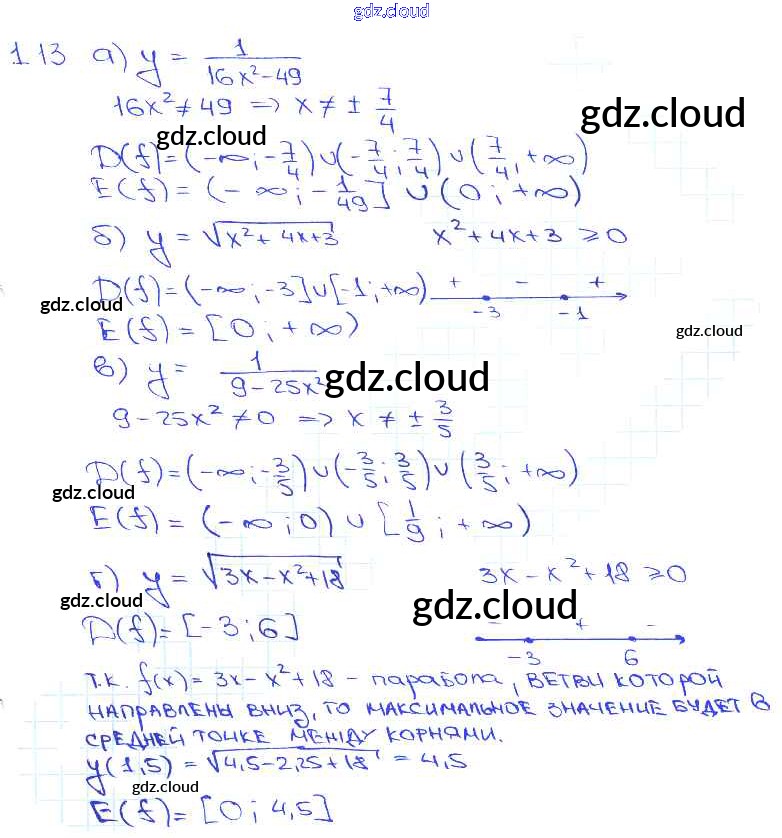 gdz.cloud
1.13 а) y = 1/(16x²-49)
16x² ≠ 49 => x ≠ ± 7/4
gdz.cloud
gdz.cloud
D(f)=(-∞;-7/4)∪(-7/4;7/4)∪(7/4,+∞)
E(f)=(-∞;-1/49]∪(0;+∞)
б) y = √(x²+4x+3) x²+4x+3 ≥0
D(f)=(-∞;-3]∪[-1;+∞) + - + -3 -1
gdz.cloud
E(f)=[0;+∞)
gdz.cloud
в) y = 1/(9-25x²)
gdz.cloud
9-25x² ≠0 => x ≠ ± 3/5
D(f)=(-∞;-3/5)∪(-3/5;3/5)∪(3/5;+∞)
gdz.cloud
E(f)=(-∞;0)∪[1/9;+∞)
г) y = √(3x-x²+18) 3x-x²+18 ≥0
gdz.cloud
gdz.cloud
D(f)=[-3;6] - + - -3 6
т.к. f(x)=3x-x²+18 - парабола, ветви которой
направлены вниз, то максимальное значение будет в
средней точке между корнями.
y(1,5)=√(4,5-2,25+18)=4,5
gdz.cloud
E(f)=[0;4,5]